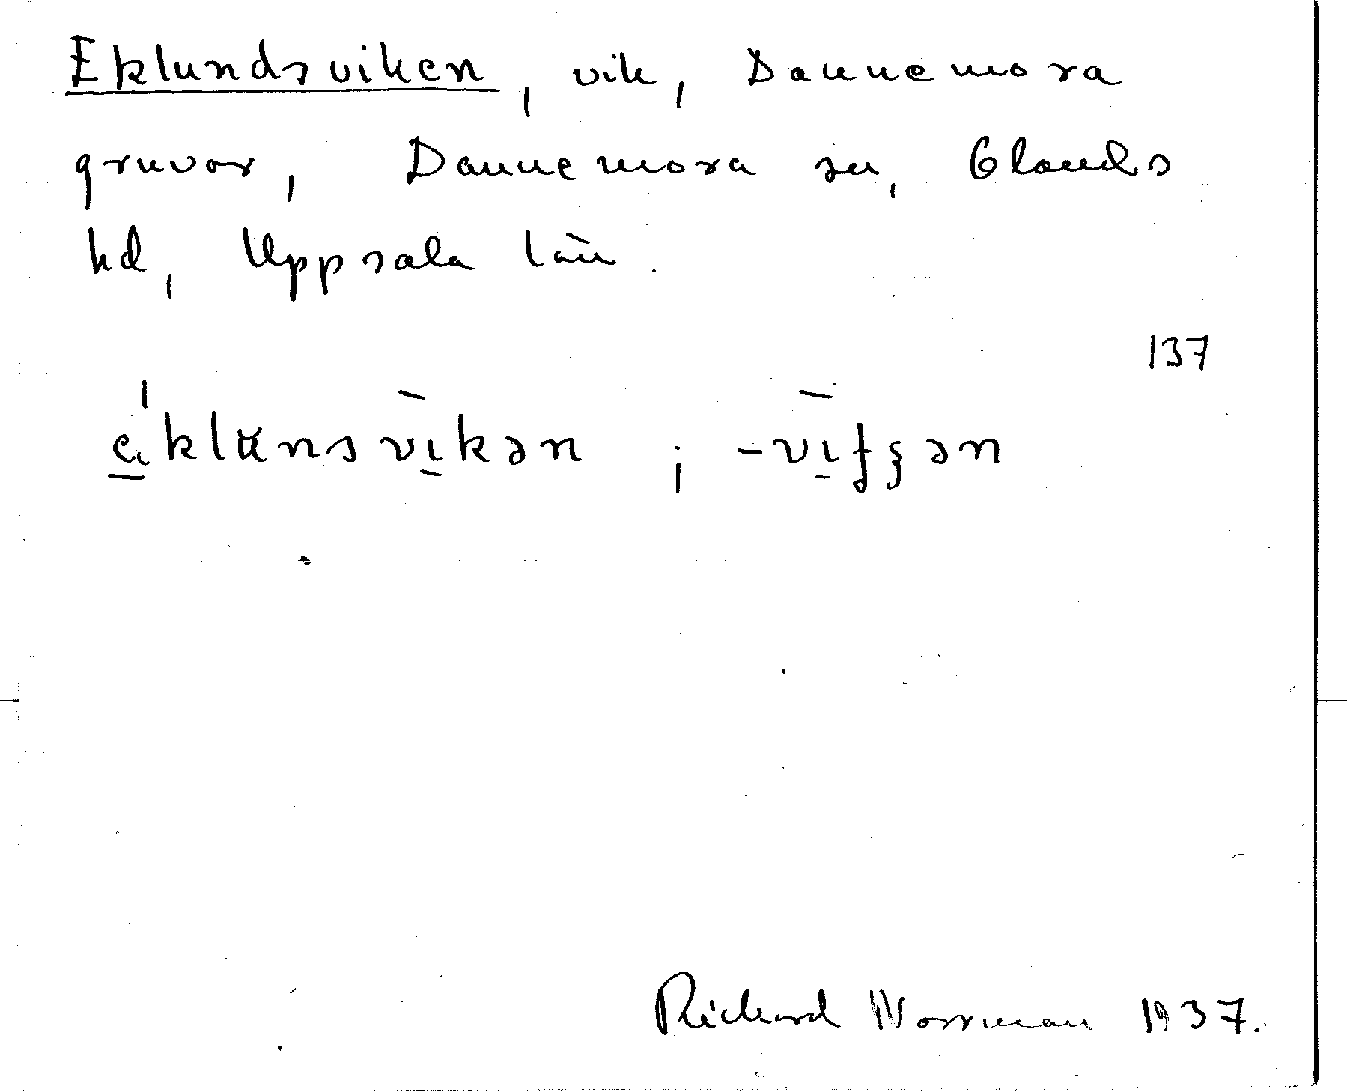 Eklundsviken, vik, Dannemora
gruvor, Dannemora sn, Olands
hd, Uppsala län.
137
Richard Norrman 1937.